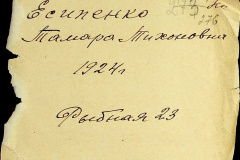 Есипенко
276
Тамара Тихоновна
1924г
Рыбная 23